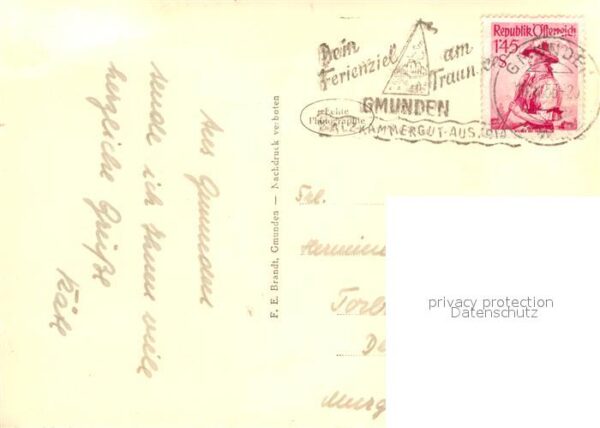 Aus Gmunden
sende ich Ihnen viele
herzliche Grüße
Käte
F. E. Brandt, Gmunden — Nachdruck verboten
Echte
Photographie
Dein
Ferienziel
am
Traunsee
GMUNDEN
SALZKAMMERGUT-AUSTRIA
GMUNDEN
Republik Österreich
1'45
S
Frl.
Hermine
Forb
De
Murg
privacy protection
Datenschutz